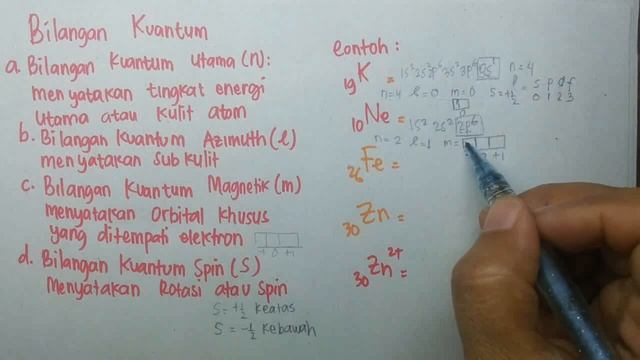 Bilangan Kuantum
a. Bilangan Kuantum Utama (n):
menyatakan tingkat energi
utama atau kulit atom
b. Bilangan Kuantum Azimuth (l)
menyatakan sub kulit
c. Bilangan Kuantum Magnetik (m)
Menyatakan Orbital Khusus
yang ditempati elektron
-1 0 +1
d. Bilangan Kuantum Spin (S)
Menyatakan Rotasi atau Spin
S = +½ keatas
S = -½ kebawah
contoh :
₁₉K = 1s² 2s² 2p⁶ 3s² 3p⁶ 4s¹ n = 4
n=4 l=0 m=0 S=+½
l = s p d f
0 1 2 3
0
₁₀Ne = 1s² 2s² 2p⁶
n = 2 l=1 m=
+1
₂₆Fe =
₃₀Zn =
₃₀Zn²⁺ =